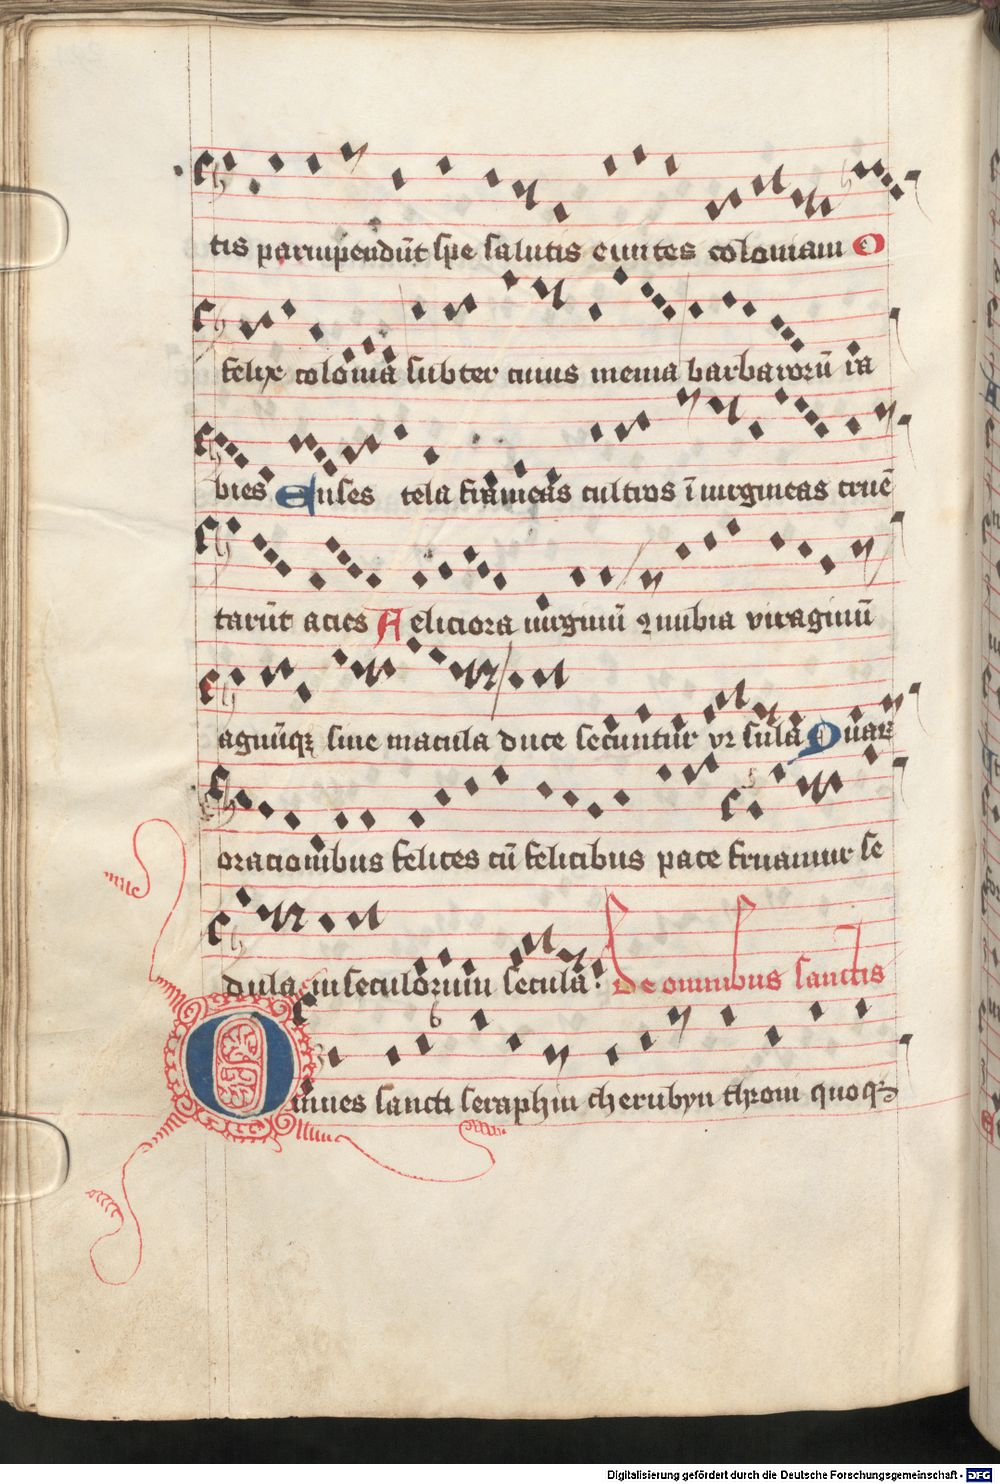 tis paruipendūt spe salutis euntes coloniam O
felix colonia subter cuius menia barbarorū ra
bies Enses tela frameas cultros ī uirgineas cruē
tarūt acies Feliciora uirginū ɔnubia viraginū
agnūqꝫ sine macula duce secuntur vrsula Quaꝝ
oracionibus felices cū felicibus pace fruamur se
dula in seculorum secula. De omnibus sanctis
Omnes sancti seraphin cherubyn throni quoqꝫ
Digitalisierung gefördert durch die Deutsche Forschungsgemeinschaft - DFG